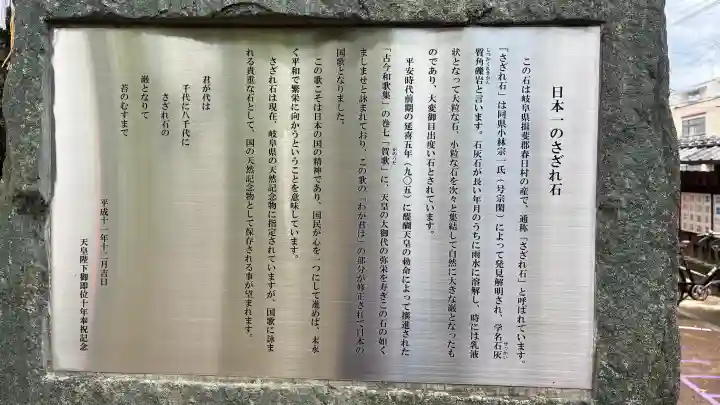 日本一のさざれ石
この石は岐阜県揖斐郡春日村の産で、通称「さざれ石」と呼ばれています。
「さざれ石」は同県小林宗一氏(号宗閑)によって発見解明され、学名石灰
質角礫岩と言います。石灰石が長い年月のうちに雨水に溶解し、時には乳液
状となって大粒な石、小粒な石を次々と集結して自然に大きな巌となったも
のであり、大変御目出度い石とされています。
平安時代前期の延喜五年(九〇五)に醍醐天皇の勅命によって撰進された
「古今和歌集」の巻七「賀歌」に、天皇の大御代の弥栄を寿ぎこの石の如く
ましませと詠まれており、この歌の「わが君は」の部分が修正されて日本の
国歌となりました。
この歌こそは日本の国の精神であり、国民が心を一つにして進めば、末永
く平和で繁栄に向かうということを意味しています。
さざれ石は現在、岐阜県の天然記念物に指定されていますが、国歌に詠ま
れる貴重な石として、国の天然記念物として保存される事が望まれます。
君が代は
千代に八千代に
さざれ石の
巌となりて
苔のむすまで
平成十一年十二月吉日
天皇陛下御即位十年奉祝記念